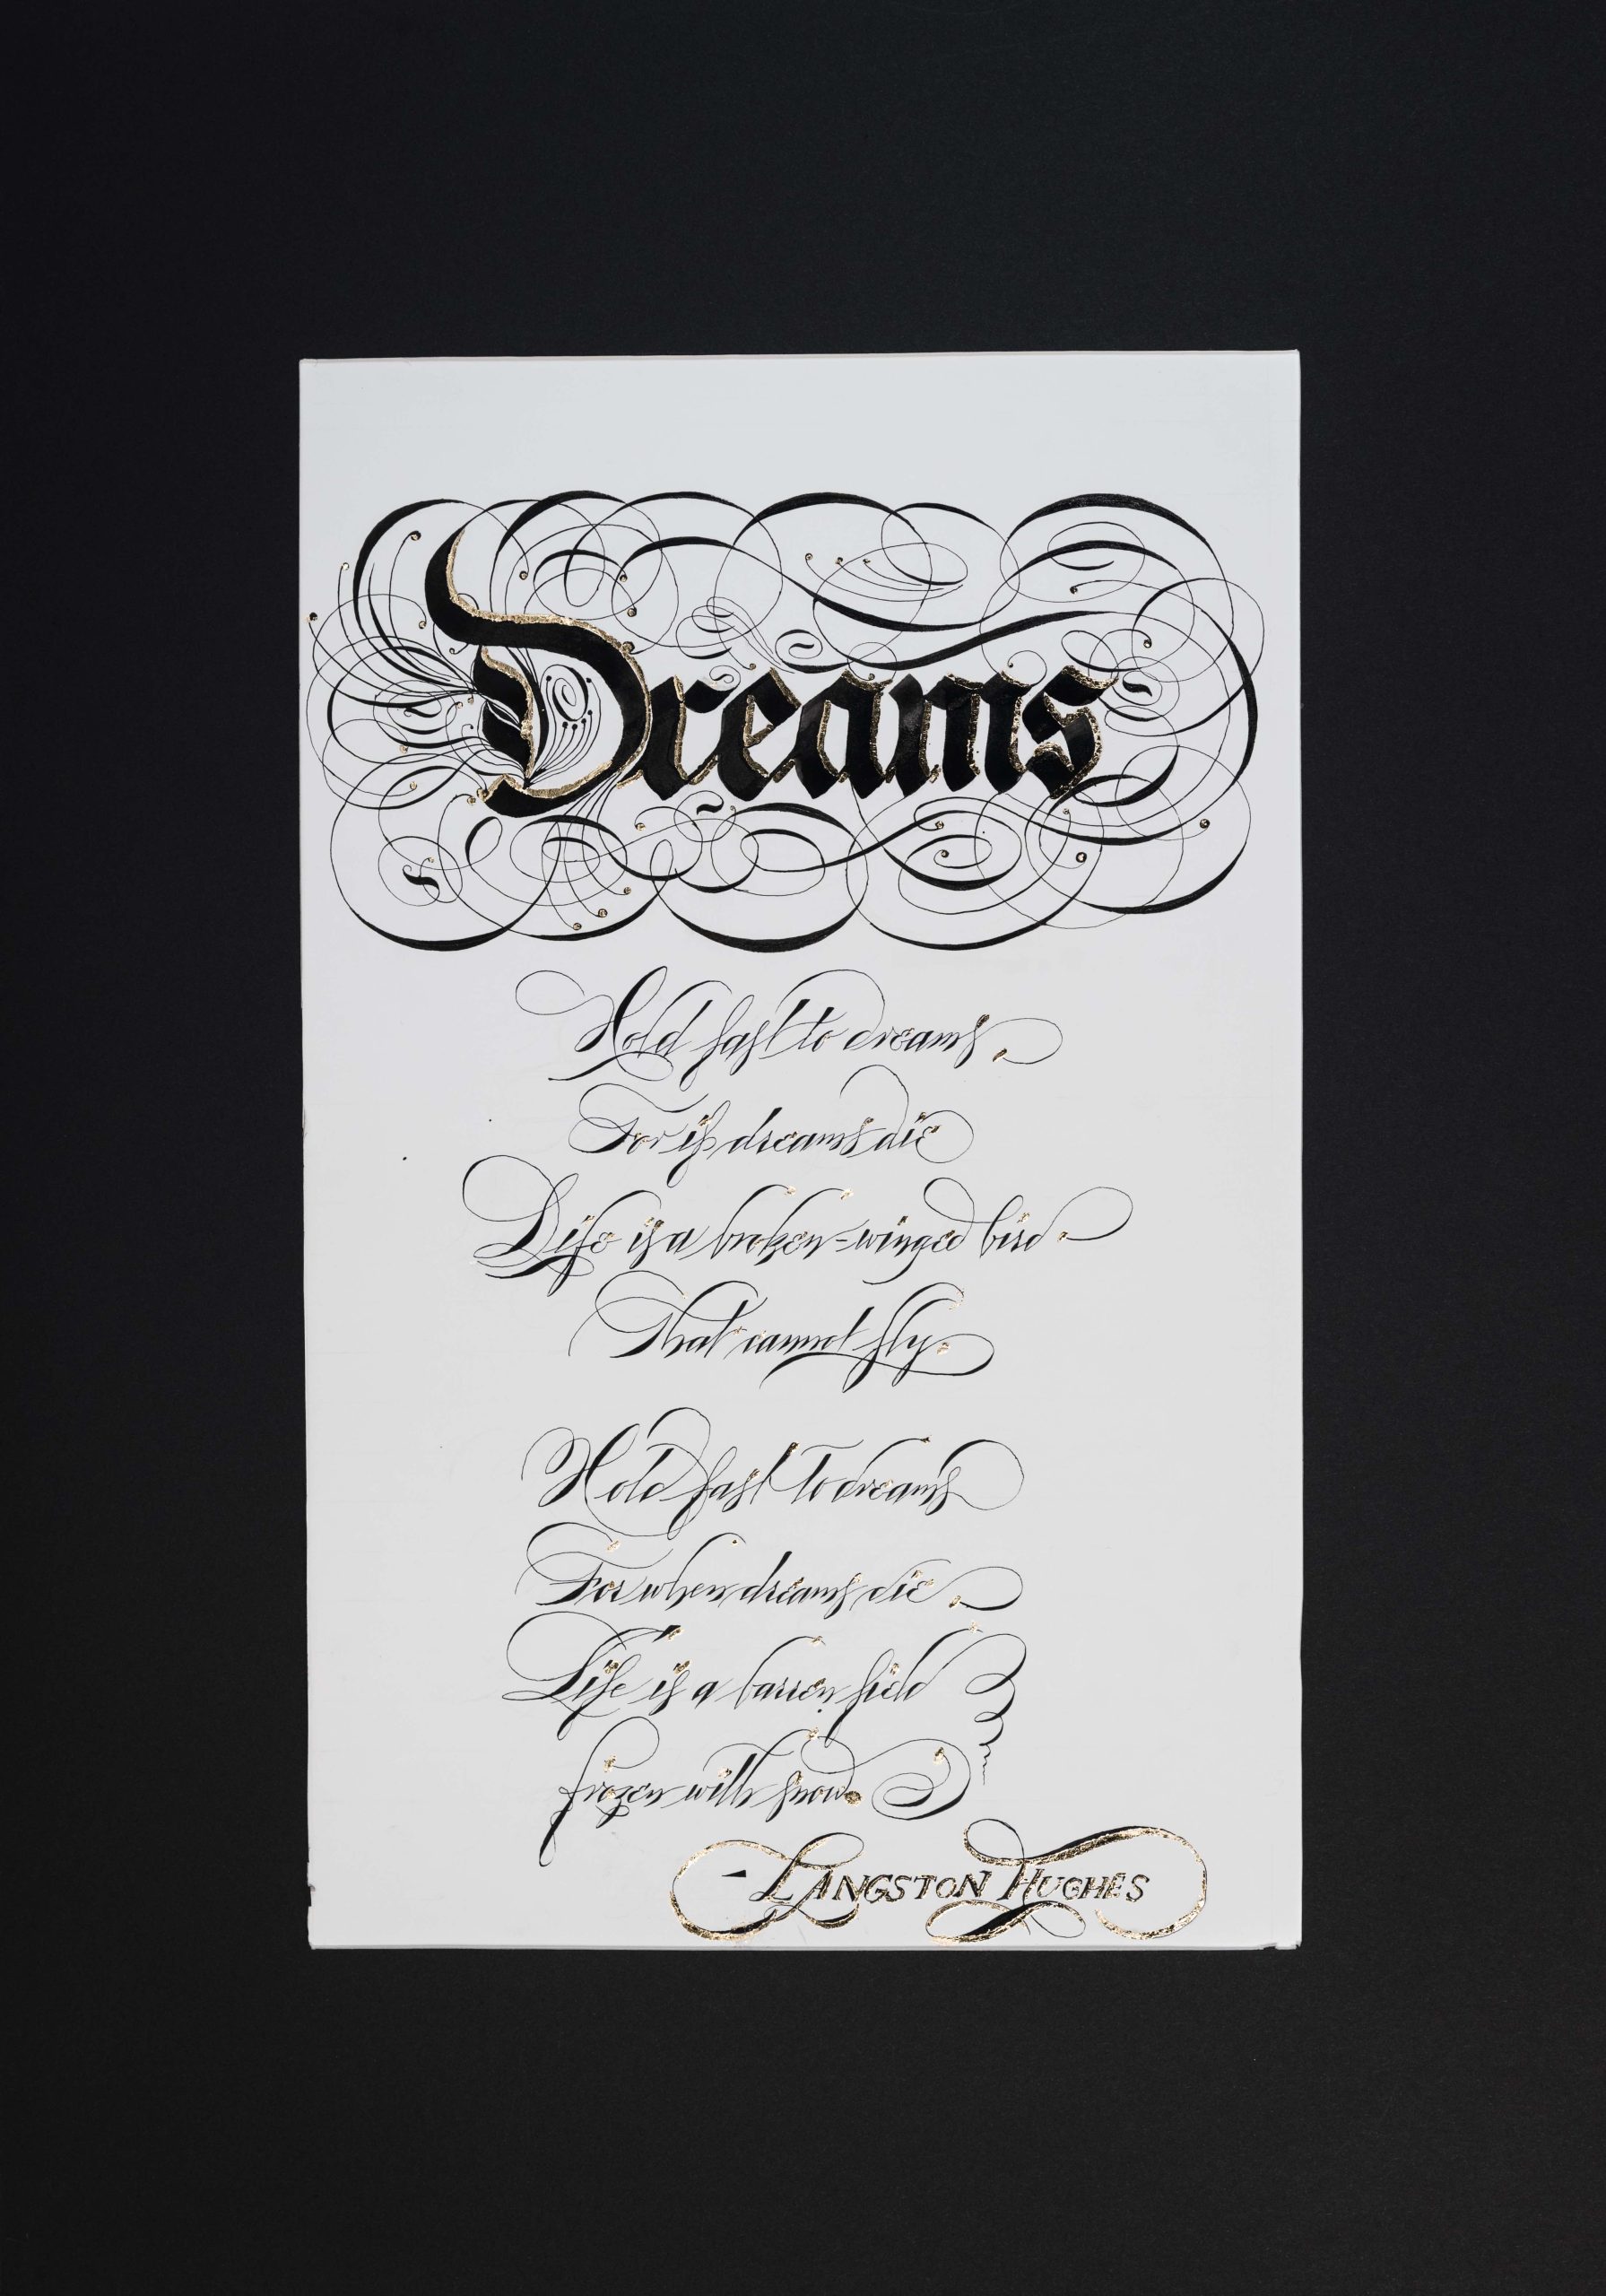 Dreams
Hold fast to dreams
For if dreams die
Life is a broken-winged bird
That cannot fly.
Hold fast to dreams
For when dreams die
Life is a barren field
frozen with snow.
- LANGSTON HUGHES